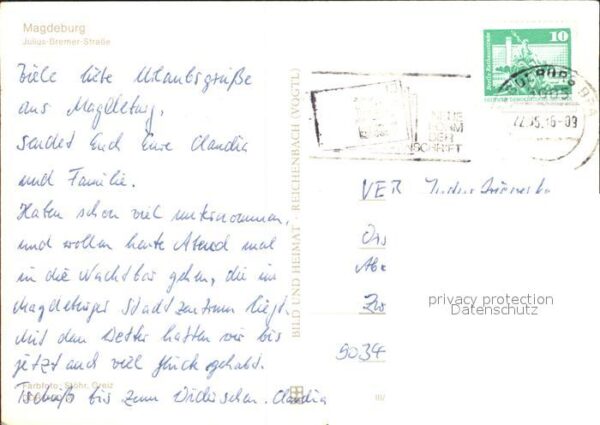 Magdeburg
Julius-Bremer-Straße
Viele liebe Urlaubsgrüße
aus Magdeburg,
sendet Euch Eure Claudia
und Familie.
Haben schon viel unternommen,
und wollen heute Abend mal
in die Nachtbar gehen, die im
Magdeburger Stadtzentrum liegt.
Mit dem Wetter hatten wir bis
jetzt auch viel Glück gehabt.
Tschüß bis zum Wiedersehen. Claudia
Farbfoto: Stöhr, Greiz
BILD UND HEIMAT · REICHENBACH (VOGTL)
10
VEB
Ors
Abt
Zw
9034
privacy protection
Datenschutz